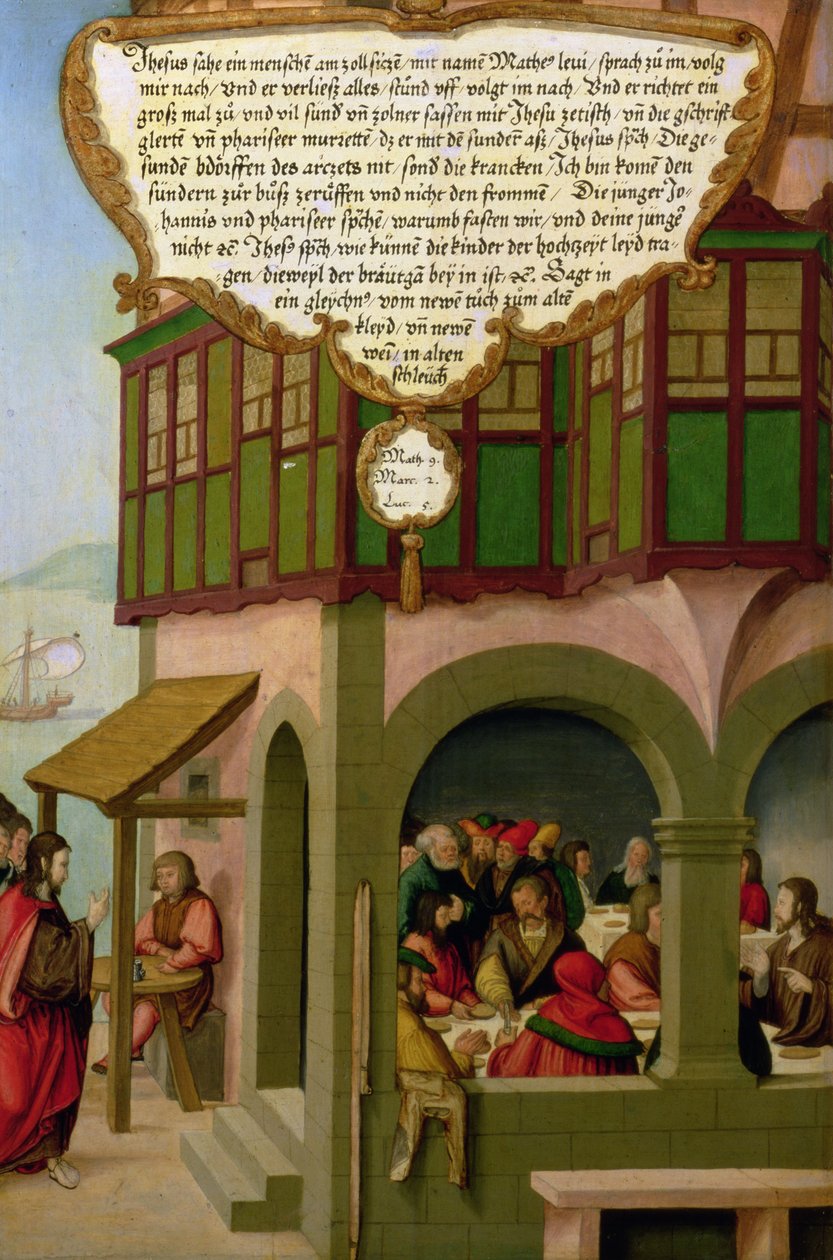 Jhesus sahe ein menschē am zoll sitzē/ mit namē Matheꝰ levi/ sprach zů im/ volg
mir nach/ Und er verließ alles/ stůnd uff/ volgt im nach/ Und er richtet ein
grosz mal zů/ und vil sund' uñ zolner sassen mit Jhesu zetisch/ uñ die gschrifft
glertē uñ phariseer murretē/ dz er mit dē sunderē asz/ Jhesus sp̄ch/ Die ge-
sundē bdörffen des artzets nit/ sond' die krancken/ Ich bin komē den
sündern zůr bůsz zerůffen und nicht den frommē/ Die jünger Jo-
-hannis und phariseer sp̄chē/ warumb fasten wir/ und deine jüngeꝰ
nicht ꝛc̄. Jhesꝰ sp̄ch/ wie künnē die kinder der hochtzeyt leyd tra-
-gen/ dieweyl der bräutgā bey in ist/ ꝛc̄. Sagt in
ein gleychnꝰ/ vom newē tůch zům altē
kleyd/ uñ newē
wein/ in alten
schleüch
Math. 9.
Marc. 2.
Luc. 5.